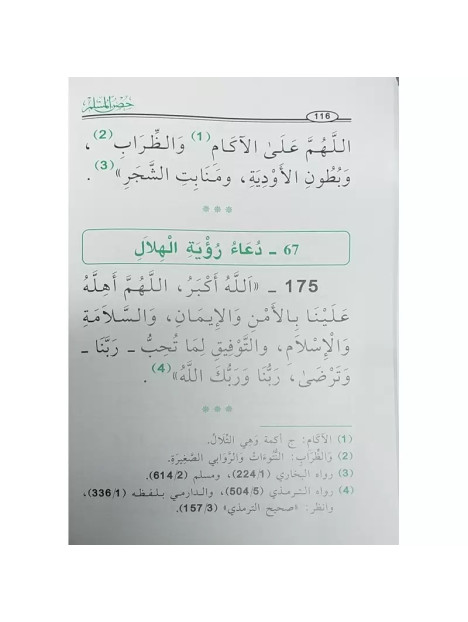 حصن المسلم
116
اللَّهُمَّ عَلَى الْآكَامِ (1) وَالظِّرَابِ (2)،
وَبُطُونِ الْأَوْدِيَةِ، وَمَنَابِتِ الشَّجَرِ» (3).
* * *
67 ـ دُعَاءُ رُؤْيَةِ الْهِلَالِ
175 ـ «اَللَّهُ أَكْبَرُ، اللَّهُمَّ أَهِلَّهُ
عَلَيْنَا بِالْأَمْنِ وَالْإِيمَانِ، وَالسَّلَامَةِ
وَالْإِسْلَامِ، والتَّوْفِيقِ لِمَا تُحِبُّ ـ رَبَّنَا ـ
وَتَرْضَىٰ، رَبُّنَا وَرَبُّكَ اللَّهُ» (4).
* * *
(1) الآكَام: ج أكمة وَهِي التِّلَالُ.
(2) وَالظِّرَاب: النُّتُوءَاتُ وَالرَّوَابِي الصَّغِيرَةِ.
(3) رواه البخاري (1/ 224)، ومسلم (2/ 614).
(4) رواه الترمذي (5/ 504)، والدارمي بلفظه (1/ 336)،
وانظر: «صحيح الترمذي» (3/ 157).